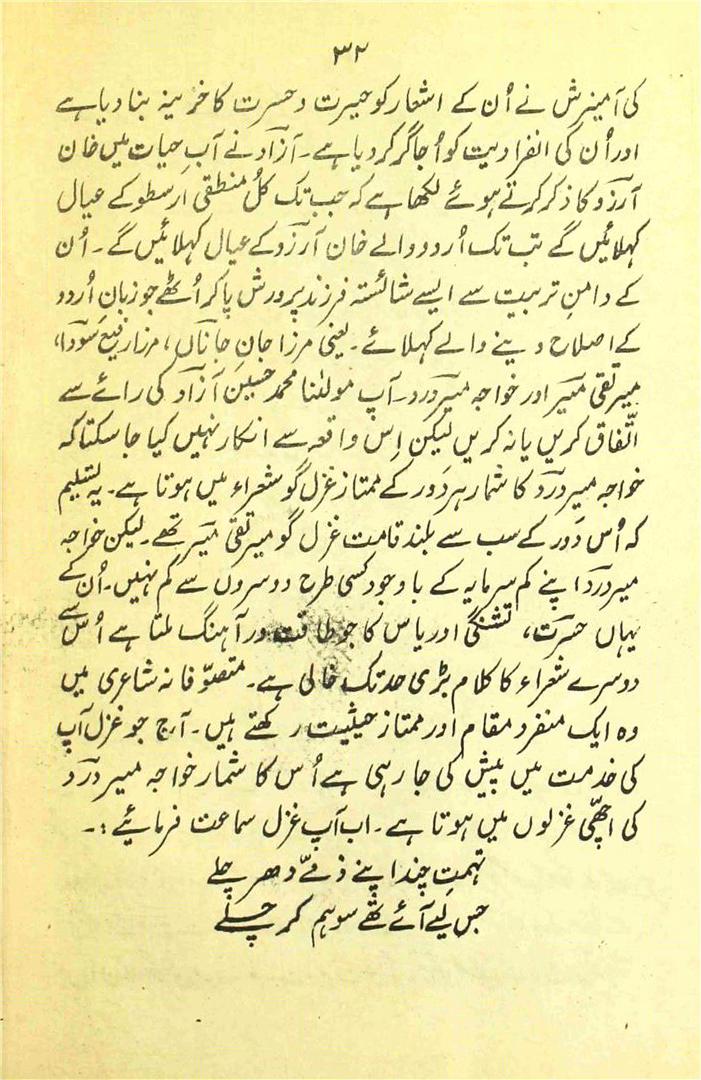 ۳۲
کی آمیزش نے اُن کے اشعار کو حیرت و حسرت کا خزینہ بنا دیا ہے
اور اُن کی انفرادیت کو اُجاگر کر دیا ہے۔ آزاد نے آبِ حیات میں خان
آرزو کا ذکر کرتے ہوئے لکھا ہے کہ جب تک کُل منطقی ارسطو کے عیال
کہلائیں گے تب تک اُردو والے خان آرزو کے عیال کہلائیں گے۔ اُن
کے دامنِ تربیت سے ایسے شائستہ فرزند پرورش پا کر اُٹھے جو زبانِ اُردو
کے اصلاح دینے والے کہلائے۔ یعنی مرزا جانِ جاناں، مرزا رفیع سودا،
میر تقی میر اور خواجہ میر درد۔ آپ مولٰنا محمد حسین آزاد کی رائے سے
اتّفاق کریں یا نہ کریں لیکن اِس واقعہ سے انکار نہیں کیا جا سکتا کہ
خواجہ میر درد کا شمار ہر دَور کے ممتاز غزل گو شعراء میں ہوتا ہے۔ یہ تسلیم
کہ اُس دَور کے سب سے بلند قامت غزل گو میر تقی میر تھے۔ لیکن خواجہ
میر درد اپنے کم سرمایہ کے باوجود کسی طرح دوسروں سے کم نہیں۔ اُن کے
یہاں حسرت، تشنگی اور یاس کا جو طاقت ور آہنگ ملتا ہے اُس سے
دوسرے شعراء کا کلام بڑی حد تک خالی ہے۔ متصوّفانہ شاعری میں
وہ ایک منفرد مقام اور ممتاز حیثیت رکھتے ہیں۔ آج جو غزل آپ
کی خدمت میں پیش کی جا رہی ہے اُس کا شمار خواجہ میر درد
کی اچھّی غزلوں میں ہوتا ہے۔ اب آپ غزل سماعت فرمائیے:۔
تہمتِ چند اپنے ذمّے دھر چلے
جس لیے آئے تھے سو ہم کر چلے